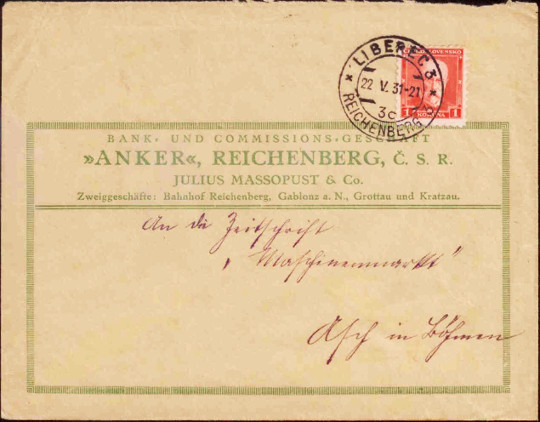 LIBEREC 3
22 V. 31-21
3c
REICHENBERG
1 1
BANK- UND COMMISSIONS-GESCHÄFT
»ANKER«, REICHENBERG, Č. S. R.
JULIUS MASSOPUST & Co.
Zweiggeschäfte: Bahnhof Reichenberg, Gablonz a. N., Grottau und Kratzau.
An die Zeitschrift
„Maschinenmarkt"
Asch in Böhmen